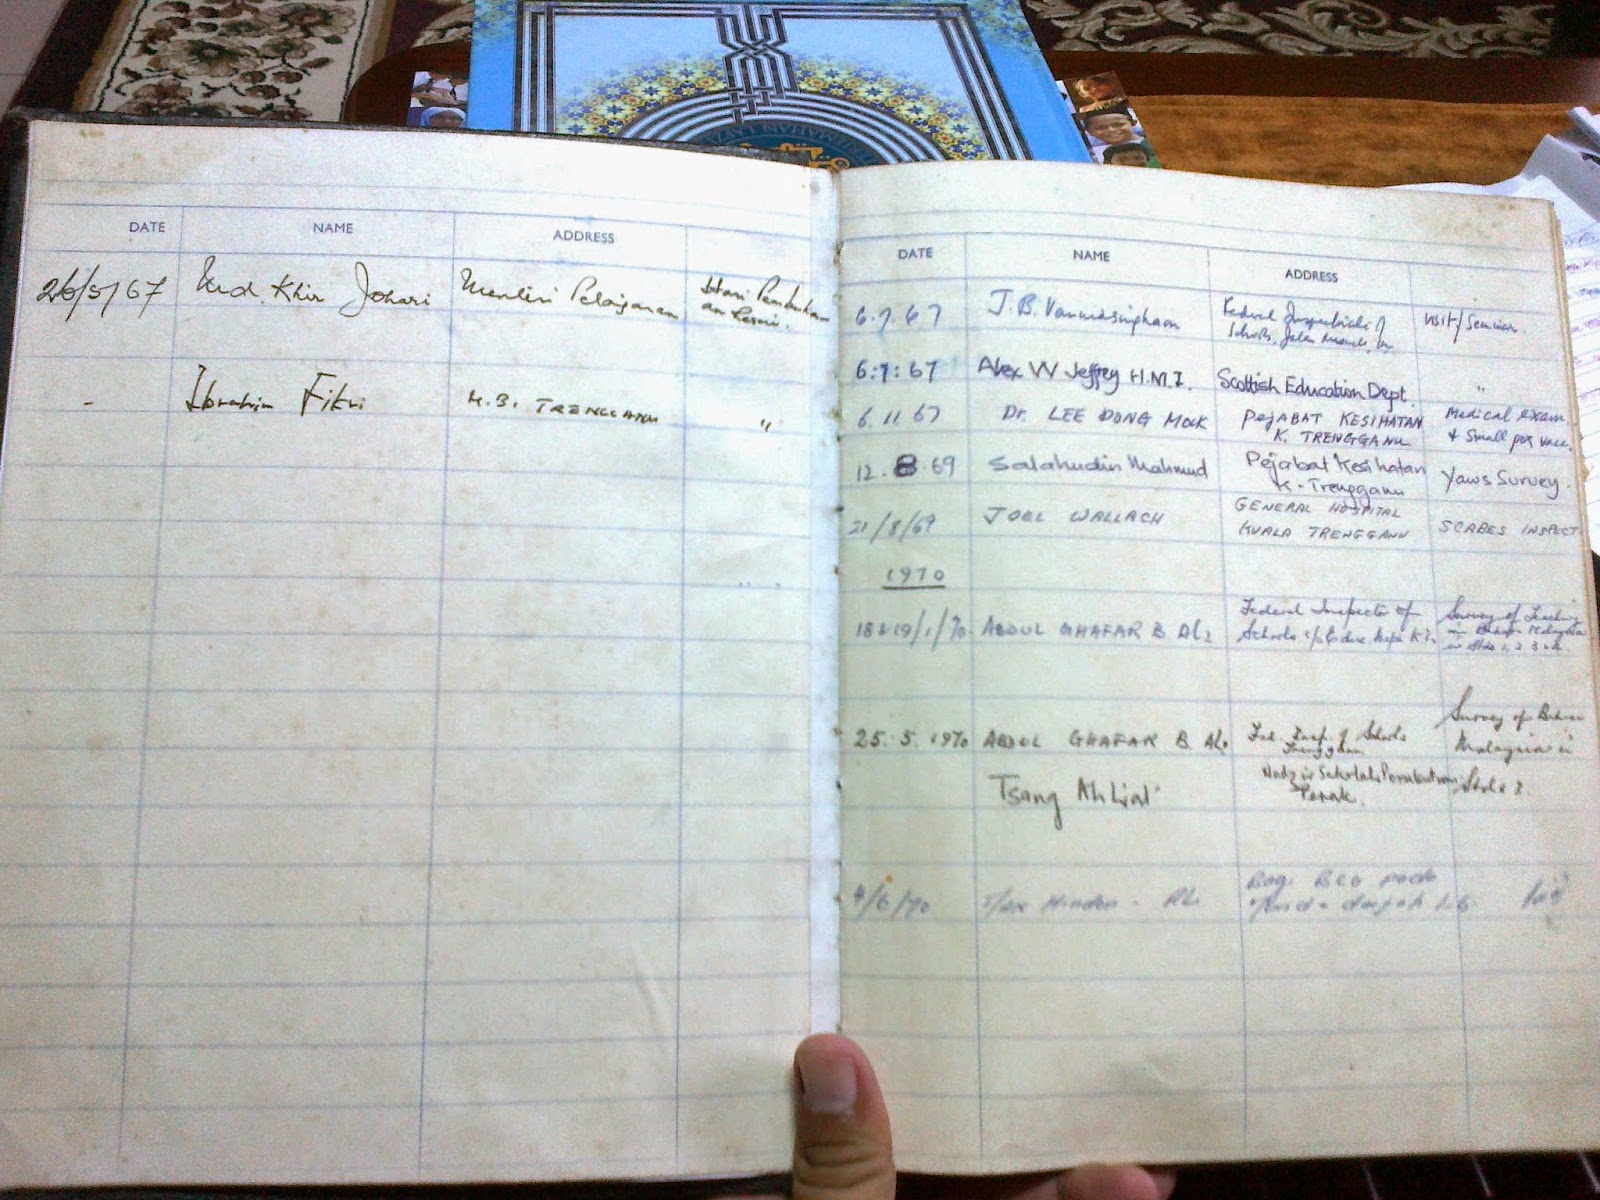 DATE NAME ADDRESS
26/5/67 Md. Khir Johari Menteri Pelajaran Hari Pembukaan
an Resmi.
- Ibrahim Fikri M.B. TRENGGANU "
DATE NAME ADDRESS
6.7.67 J.B. Federal Inspectorate of Visit/Seminar.
Schools, Jalan
6:7:67 Alex W Jeffrey H.M.I. Scottish Education Dept. "
6.11.67 Dr. LEE DONG MOCK PEJABAT KESIHATAN Medical exam
K. TRENGGANU & Small pox vacc.
12.8.69 Salahudin Mahmud Pejabat Kesihatan Yaws Survey.
K. Trengganu
21/8/69 JOEL WALLACH GENERAL HOSPITAL
KUALA TRENGGANU SCABES INSPECT
1970
18 & 19/1/70 ABDUL GHAFAR B. Federal Inspector of Survey of Teaching
Schools in Bahasa Malaysia
in Stds 1, 2, 3
25.5.1970 ABDUL GHAFAR B. Fed. Insp. of Schools Survey of Bahasa
Trengganu Malaysia in
Tsang Nazir Sekolah Persekutuan Stds
Perak.
4/6/70 BCG pada
darjah 1 & 6